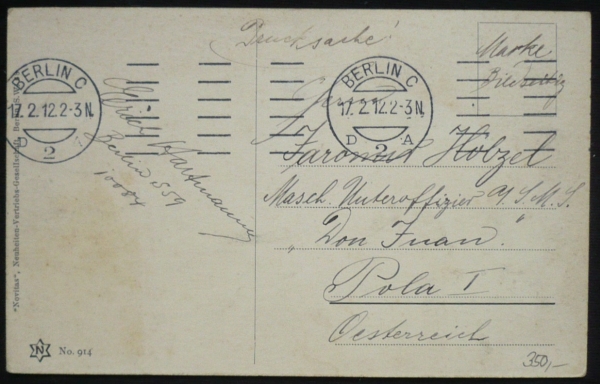 Drucksache!
Marke
Bildseitig
BERLIN C
17.2.12.2-3N.
D 2
BERLIN C
17.2.12.2-3N.
D 2 A
Hartmann
Berlin S59
Herrn
Jaromir Holzel
Masch. Unteroffizier a/ S.M.S.
„Don Juan."
Pola I
Oesterreich
"Novitas", Neuheiten-Vertriebs-Gesellschaft, Berlin S.W.
N
No. 914
350,-